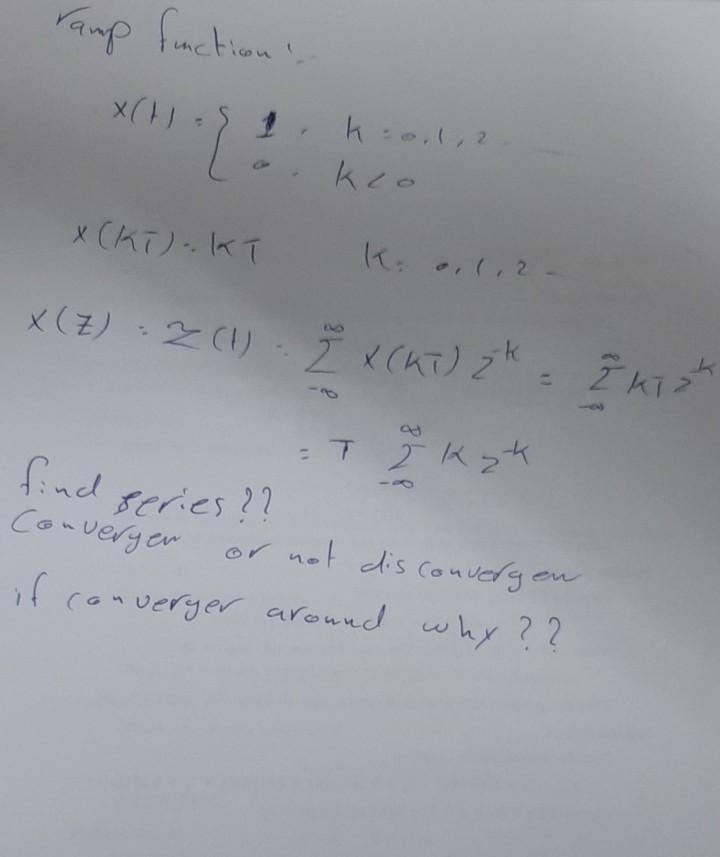 ramp function:
x(t) = { 1 , k = 0, 1, 2
0 , k < 0
x(kT) = kT k = 0, 1, 2 -
X(Z) = Z(1) = ∞ Σ -∞ x(kT) z^-k = ∞ Σ -∞ kT z^-k
= T ∞ Σ -∞ k z^-k
find series??
Convergen or not disconvergen
if converger around why??